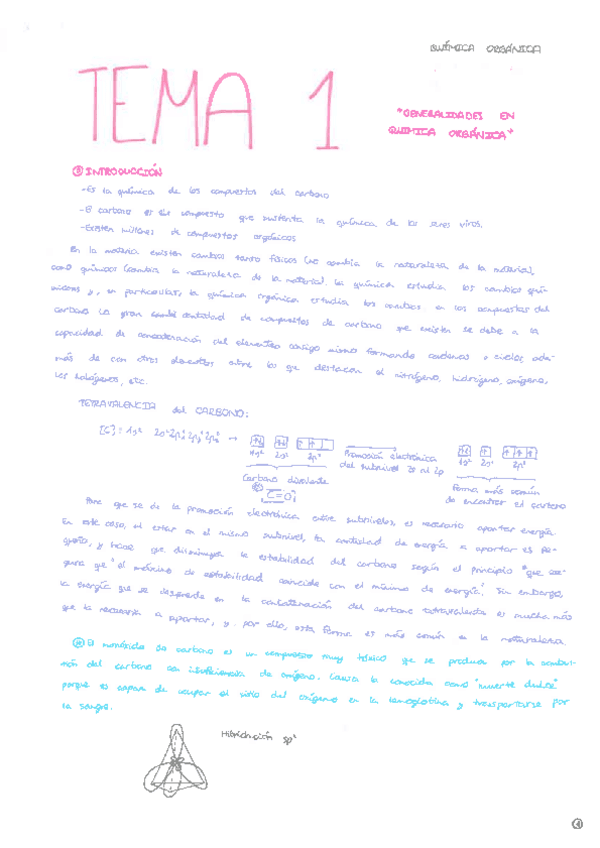 QUÍMICA ORGÁNICA
TEMA 1
"GENERALIDADES EN
QUÍMICA ORGÁNICA"
INTRODUCCIÓN
-Es la química de los compuestos del carbono
-El carbono es un compuesto que sustenta la química de los seres vivos.
-Existen millones de compuestos orgánicos
En la materia existen cambios tanto físicos (no cambia la naturaleza de la materia),
como químicos (cambia la naturaleza de la materia). La química estudia los cambios quí-
micos y, en particular, la química orgánica estudia los cambios en los compuestos del
carbono. La gran cantidad de compuestos de carbono que existen se debe a la
capacidad de concatenación del elemento consigo mismo formando cadenas o ciclos, ade-
más de con otros elementos entre los que destacan el nitrógeno, hidrógeno, oxígeno,
los halógenos, etc.
TETRAVALENCIA del CARBONO:
[C]: 1s² 2s² 2px¹ 2py¹ 2pz⁰ →
1s² 2s² 2p²
Promoción electrónica
del subnivel 2s al 2p
1s² 2s¹ 2p³
Carbono divalente
C=O
Forma más común
de encontrar el carbono
Para que se de la promoción electrónica entre subniveles, es necesario aportar energía.
En este caso, al estar en el mismo subnivel, la cantidad de energía a aportar es pe-
queña, y hace que disminuya la estabilidad del carbono según el principio "que ase-
gura que "el máximo de estabilidad coincide con el mínimo de energía". Sin embargo,
la energía que se desprende en la concatenación del carbono tetravalente es mucha más
que la necesaria a aportar, y por ello, esta forma es más común en la naturaleza.
El monóxido de carbono es un compuesto muy tóxico que se produce por la combus-
tión del carbono con insuficiencia de oxígeno. Causa la conocida como "muerte dulce"
porque es capaz de ocupar el sitio del oxígeno en la hemoglobina y transportarse por
la sangre.
Hibridación sp³
1